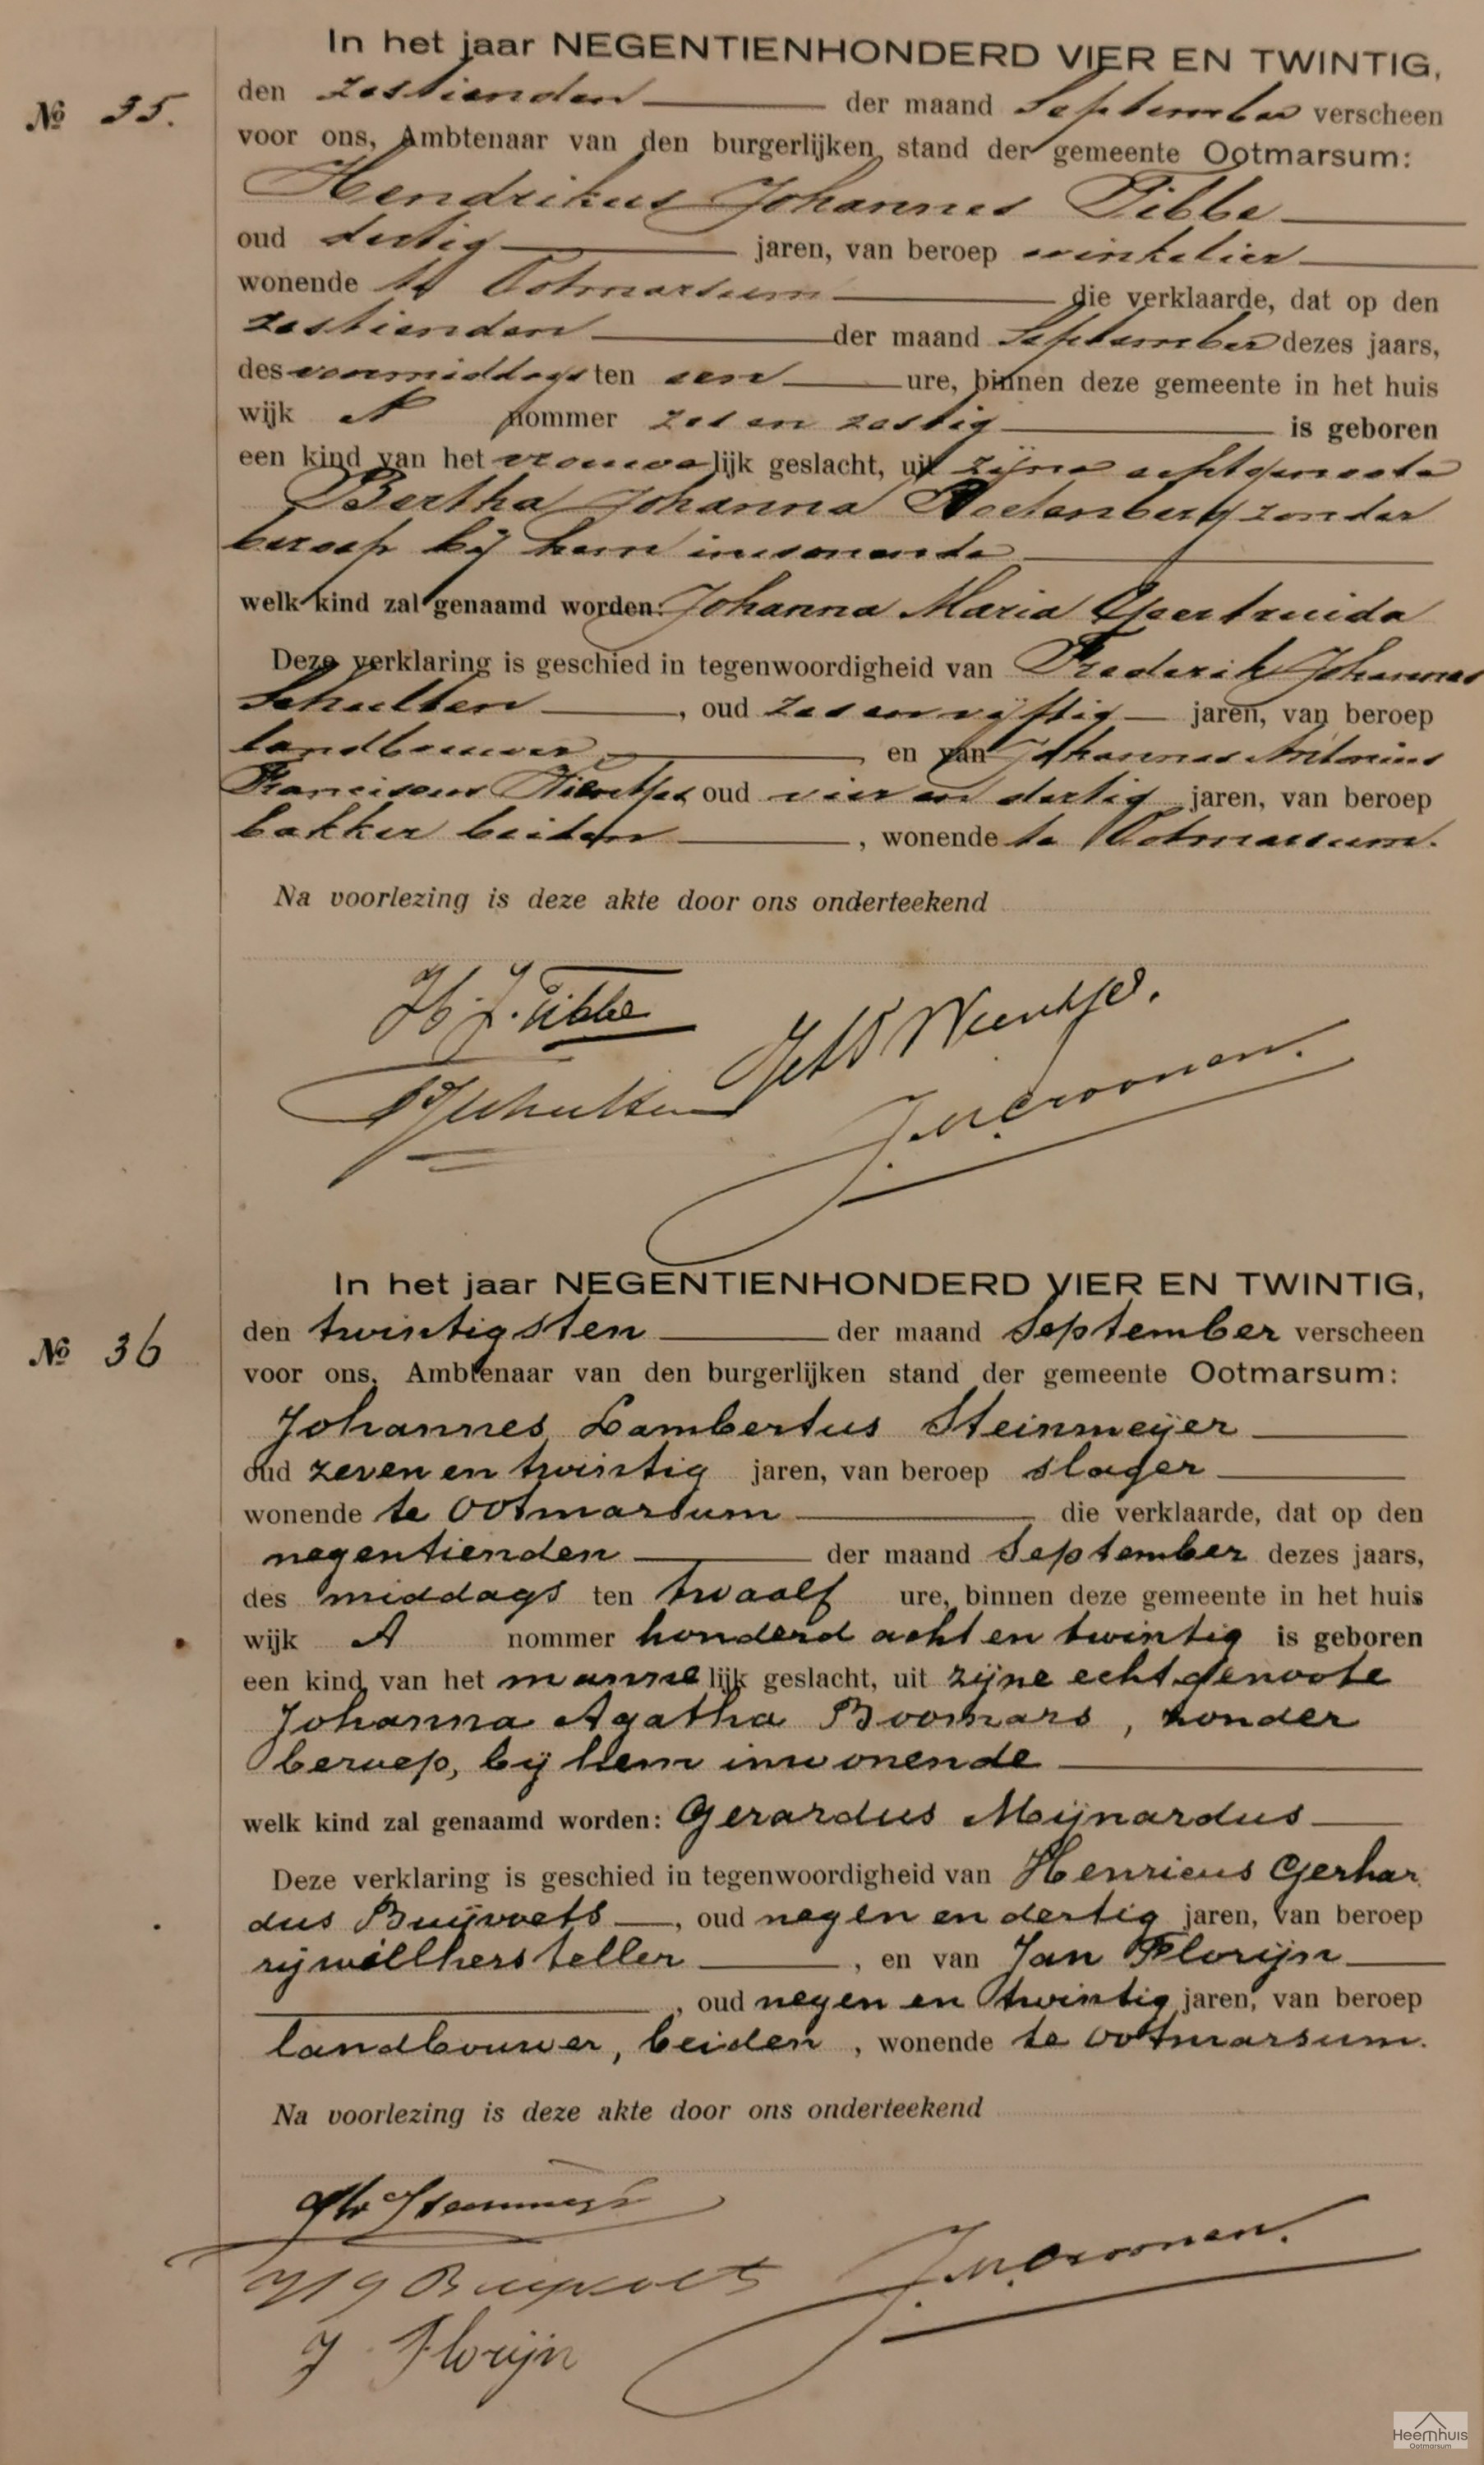 In het jaar NEGENTIENHONDERD VIER EN TWINTIG,
№ 35.
den zestienden der maand September verscheen
voor ons, Ambtenaar van den burgerlijken stand der gemeente Ootmarsum:
Hendrikus Johannes Tibbe
oud dertig jaren, van beroep winkelier
wonende te Ootmarsum die verklaarde, dat op den
zestienden der maand September dezes jaars,
des voormiddags ten een ure, binnen deze gemeente in het huis
wijk A nommer zes en zestig is geboren
een kind van het vrouwelijk geslacht, uit zijne echtgenoote
Bertha Johanna zonder
beroep bij hem inwonende
welk kind zal genaamd worden: Johanna Maria Geertruida
Deze verklaring is geschied in tegenwoordigheid van Frederik Johannes
Schulten, oud zes en vijftig jaren, van beroep
landbouwer, en van Johannes Antonius
Franciscus oud vier en dertig jaren, van beroep
bakker beiden, wonende te Ootmarsum.
Na voorlezing is deze akte door ons onderteekend
H. J. Tibbe
Schulten
J. M. Croonen.
In het jaar NEGENTIENHONDERD VIER EN TWINTIG,
№ 36
den twintigsten der maand September verscheen
voor ons, Ambtenaar van den burgerlijken stand der gemeente Ootmarsum:
Johannes Lambertus Steinmeijer
oud zeven en twintig jaren, van beroep slager
wonende te Ootmarsum die verklaarde, dat op den
negentienden der maand September dezes jaars,
des middags ten twaalf ure, binnen deze gemeente in het huis
wijk A nommer honderd acht en twintig is geboren
een kind van het mannelijk geslacht, uit zijne echtgenoote
Johanna Agatha Boomars, zonder
beroep, bij hem inwonende
welk kind zal genaamd worden: Gerardus Meijnardus
Deze verklaring is geschied in tegenwoordigheid van Henricus Gerhar
dus Buijvoets, oud negen en dertig jaren, van beroep
rijwielhersteller, en van Jan Florijn
, oud negen en twintig jaren, van beroep
landbouwer, beiden, wonende te Ootmarsum.
Na voorlezing is deze akte door ons onderteekend
J. M. Croonen.
Buijvoets
J. Florijn
Heemhuis
Ootmarsum